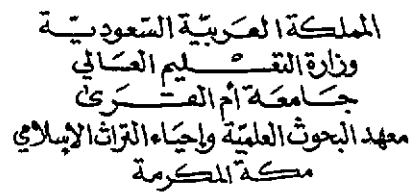 المملكة العربية السعودية
وزارة التعليم العالي
جامعة أم القرى
معهد البحوث العلمية وإحياء التراث الإسلامي
مكة المكرمة